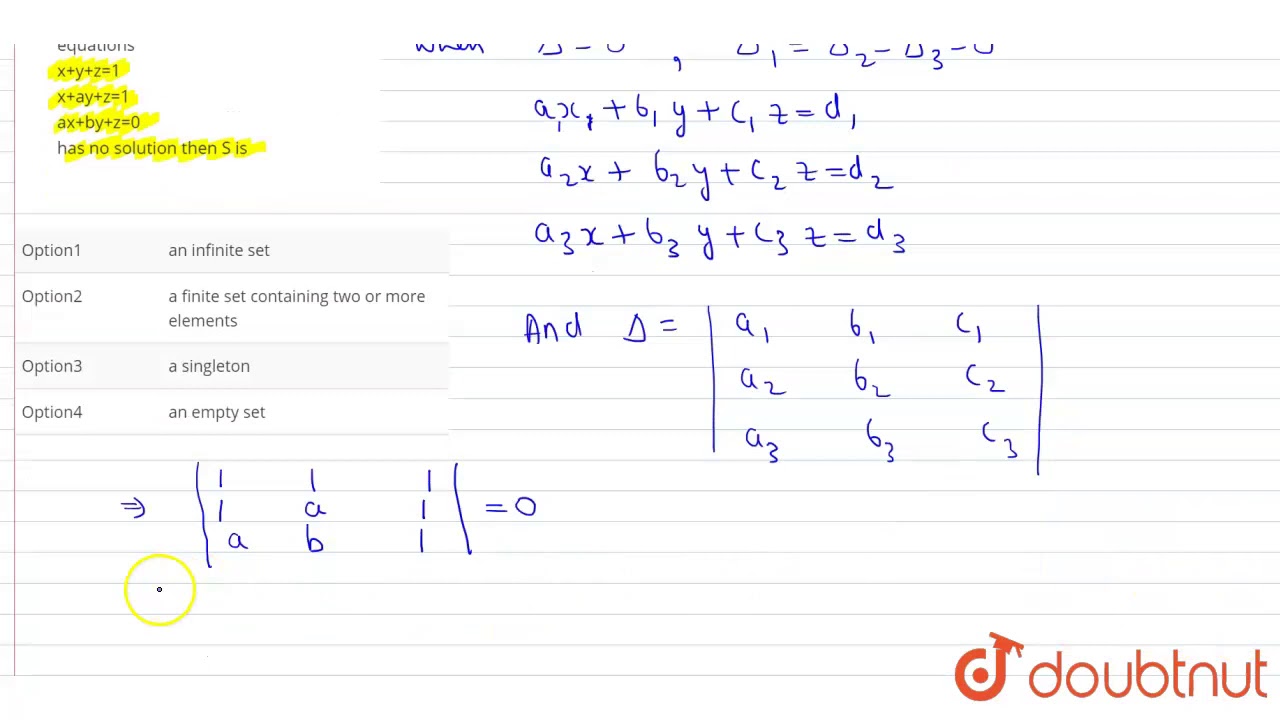 equations
x+y+z=1
x+ay+z=1
ax+by+z=0
has no solution then S is
Option1 an infinite set
Option2 a finite set containing two or more
elements
Option3 a singleton
Option4 an empty set
When Δ = 0 , Δ₁ = Δ₂ = Δ₃ = 0
a₁x₁ + b₁ y + c₁ z = d₁
a₂x + b₂ y + c₂ z = d₂
a₃x + b₃ y + c₃ z = d₃
And Δ = | a₁ b₁ c₁ |
a₂ b₂ c₂
a₃ b₃ c₃
⇒ | 1 1 1 |
1 a 1 = 0
a b 1
doubtnut